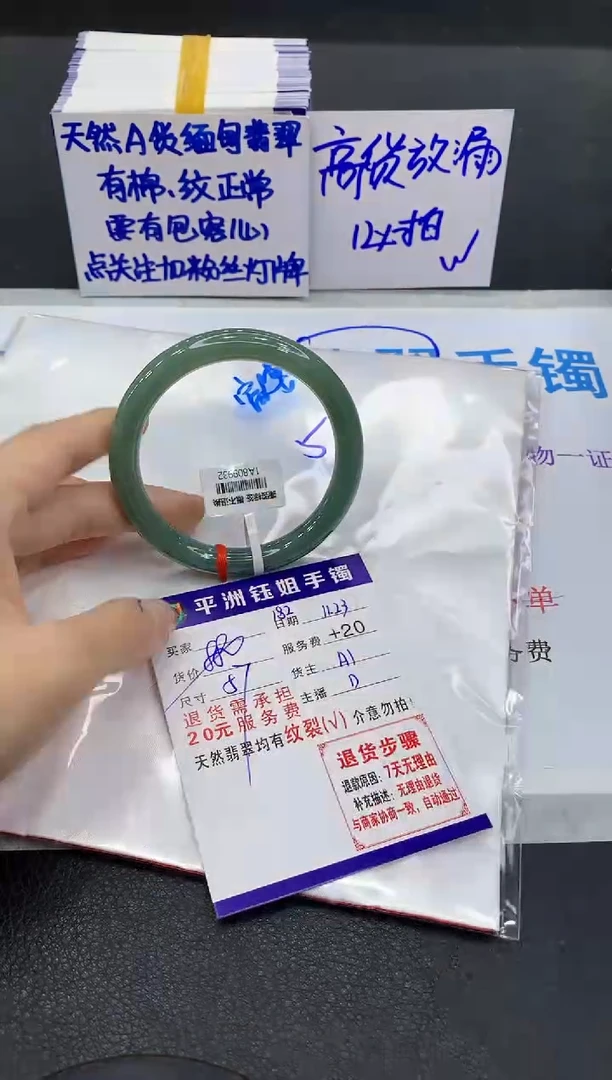 天然A货缅甸翡翠
有棉、纹正常
要有包容心
点关注加粉丝灯牌
高货放漏
手镯
物一证
单
费
1A809932
平洲钰姐手镯
182
日期 11.23
买家
服务费 +20
货价 880
货主 A1
尺寸 57
主播 D
退货需承担
20元服务费
天然翡翠均有纹裂(√) 介意勿拍!
退货步骤
退款原因: 7天无理由
补充描述: 无理由退货
与商家协商一致, 自动通过